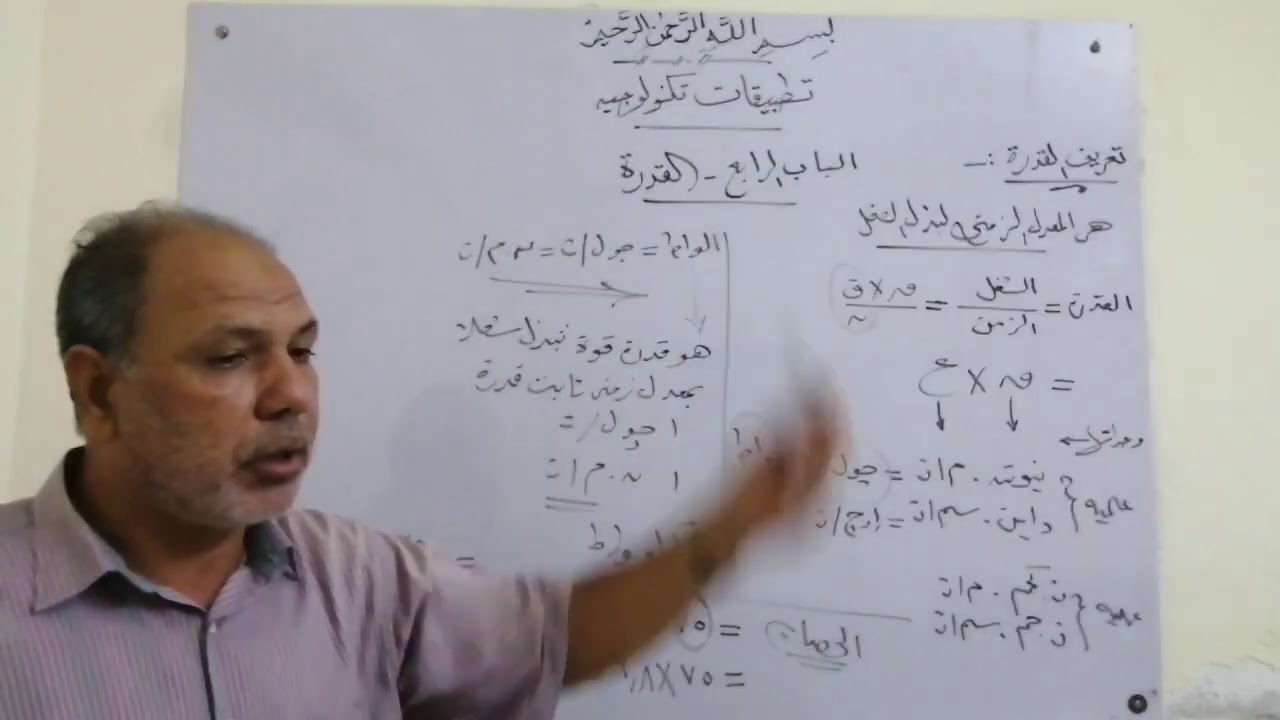 بِسمِ اللَّهِ الرَّحمٰنِ الرَّحيمِ
تطبيقات تكنولوجيه
الباب الرابع - القدرة
تعريف القدرة :-
هى المعدل الزمنى لبذل الشغل
القدرة = الشغل / الزمن = ق × ف / ن
= ق × ع
وحداتها
علميه { نيوتن . م/ث = جول
داين . سم/ث = إرج/ث
ث كجم . م/ث
ث جم . سم/ث
الواط = جول/ث = ن.م/ث
هو قدرة قوة تبذل شغلاً
بمعدل زمنى ثابت قدرة
١ جول/ث
١ ن.م/ث
الحصان =
= ٧٥ × ٩,٨